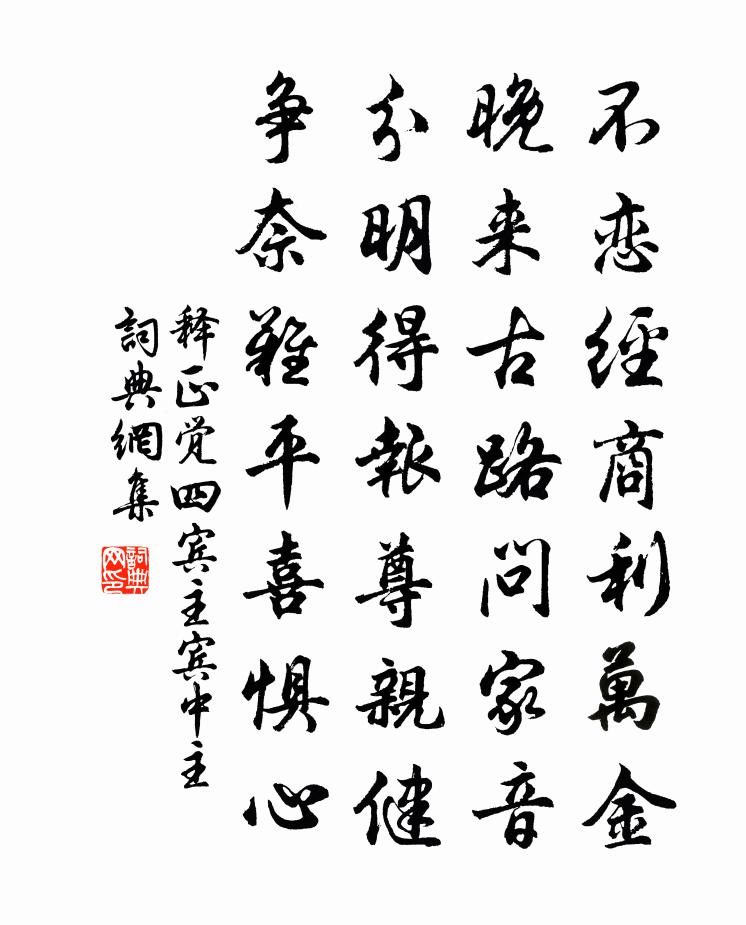 不恋經商利萬金
晚来古路問家音
分明得報尊親健
争奈難平喜惧心
释正覚四宾主宾中主
詞典網集
詞典网印